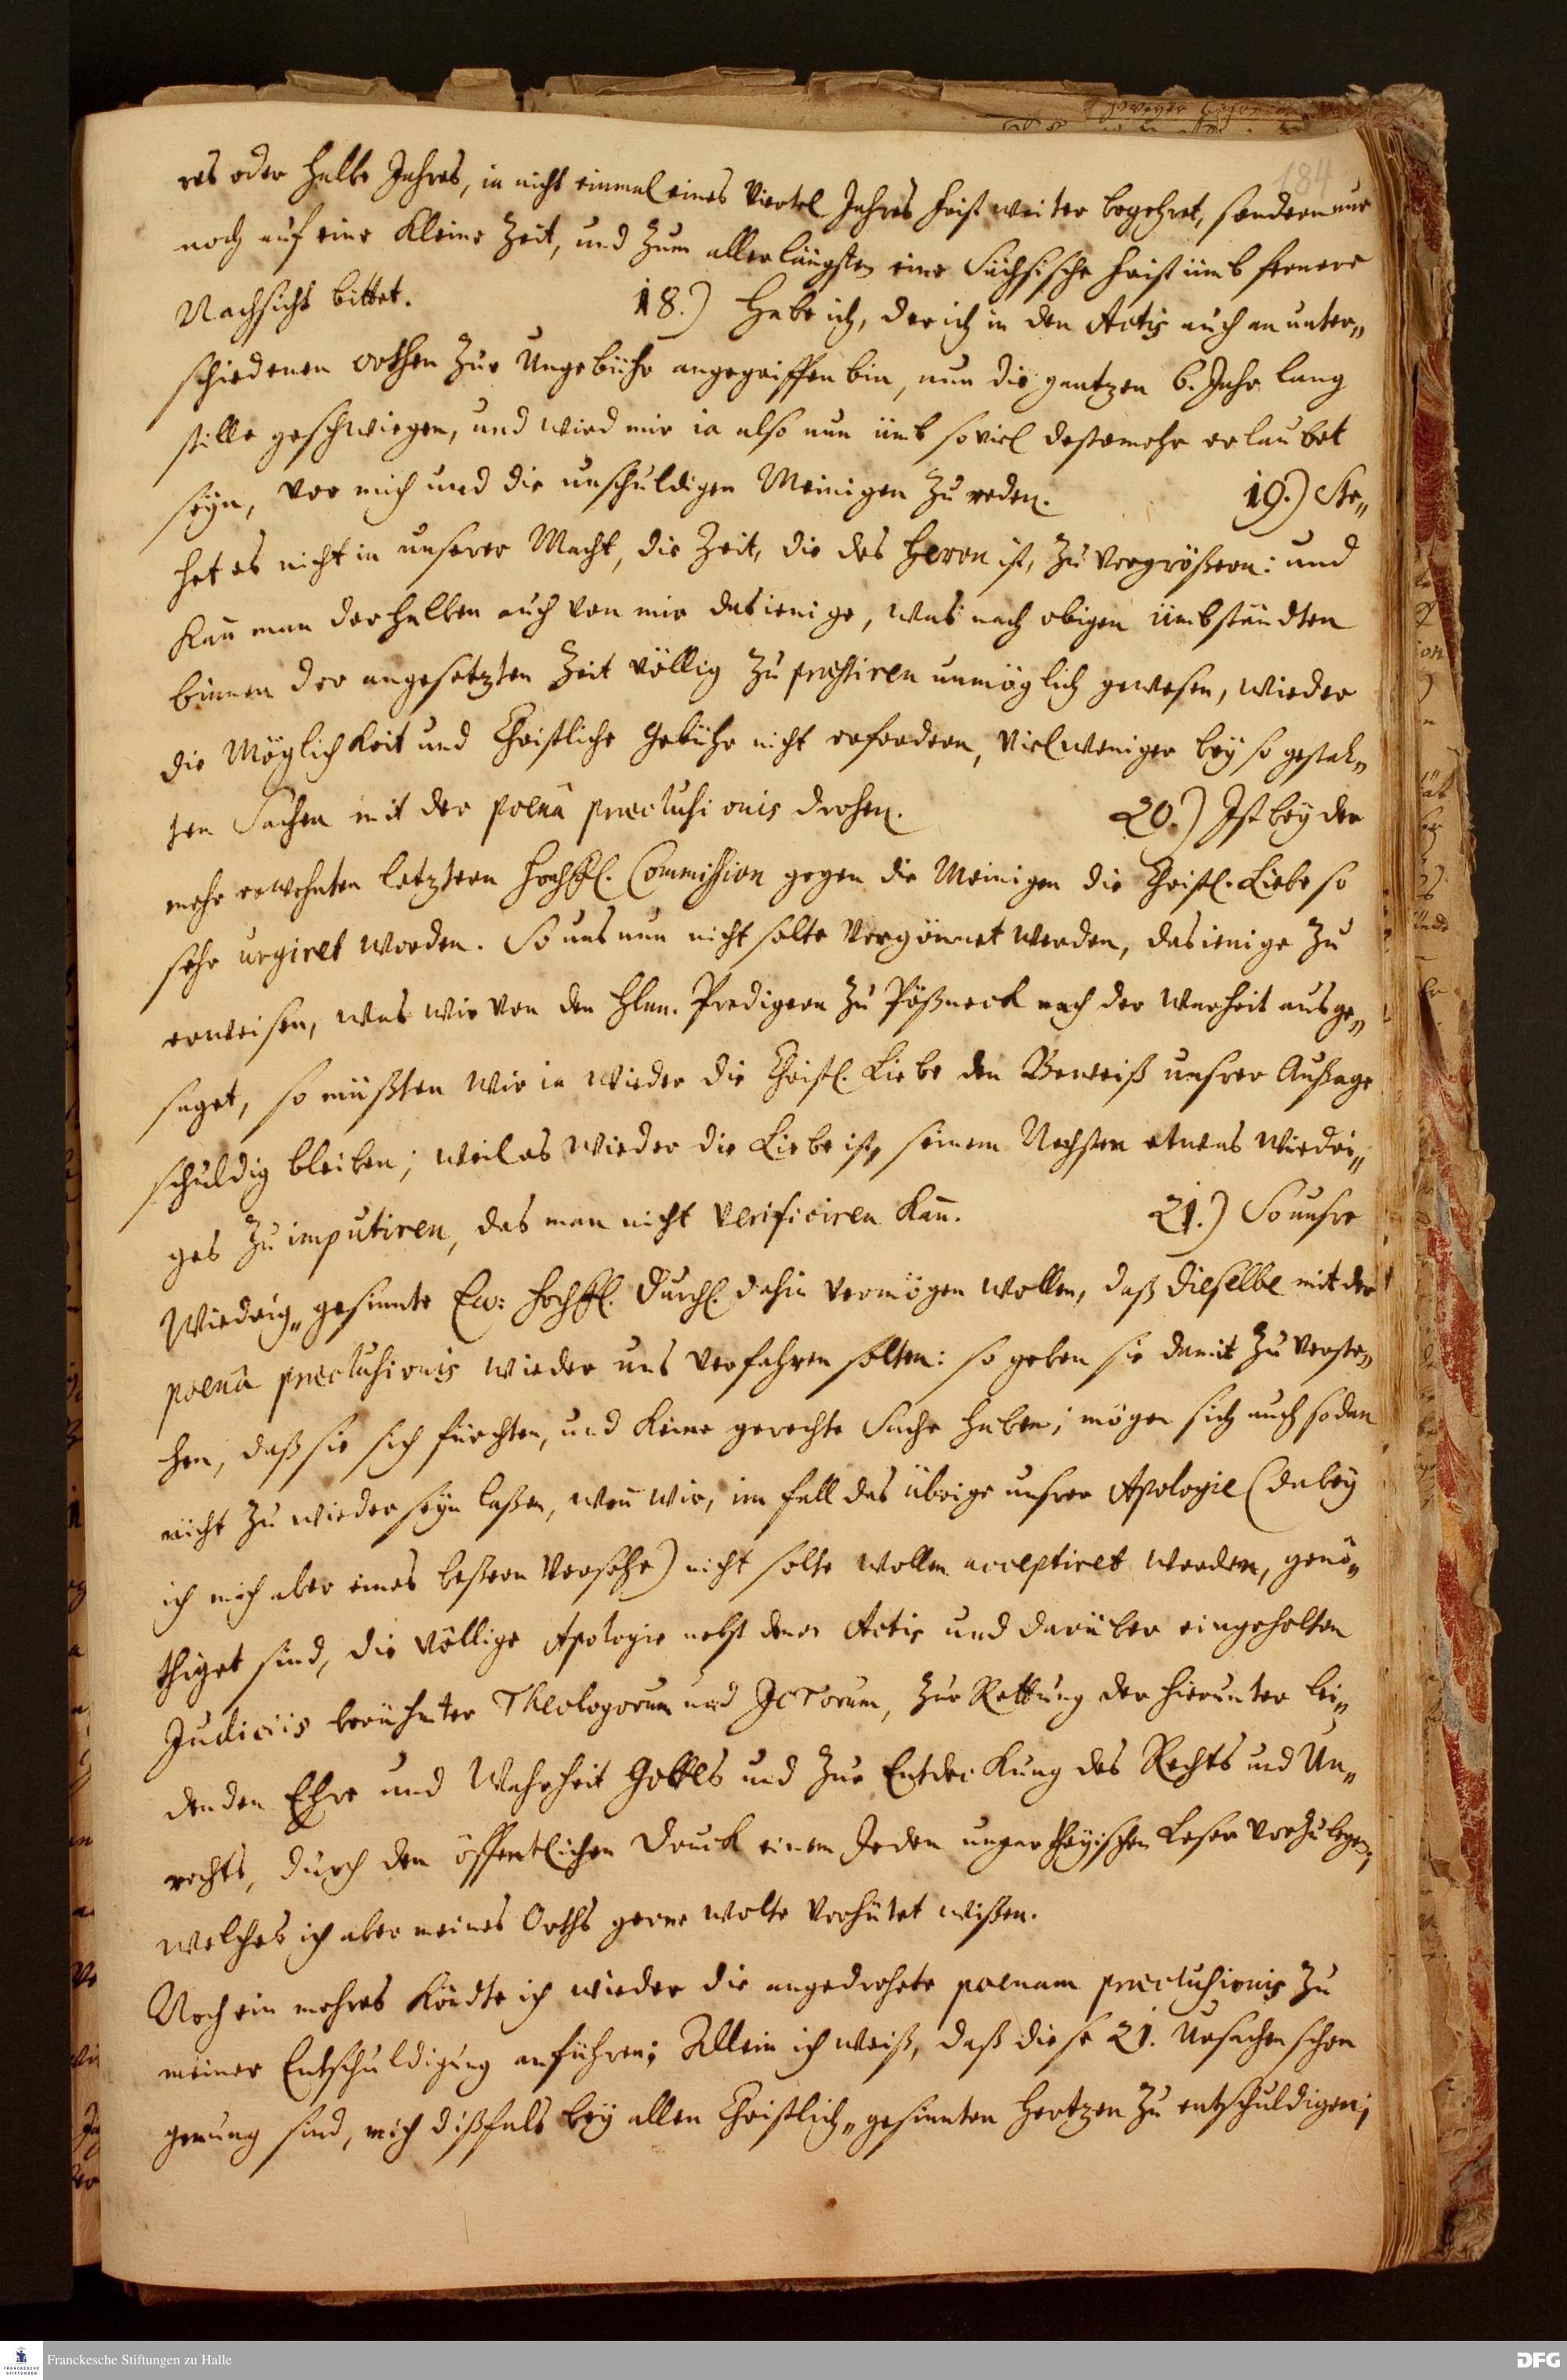 184
res oder halbe Jahres, ja nicht einmal eines Viertel Jahres frist weiter begehret, sondern nur
noch auf eine kleine Zeit, und zum allerlängsten eine Sächsische frist ümb fernere
Nachsicht bittet. 18.) Habe ich, der ich in den Actis auch an unter„
schiedenen orthen zur Ungebühr angegriffen bin, nun die gantzen 6. Jahr lang
stille geschwiegen, und wird mir ja also nun ümb soviel destomehr erlaubet
seyn, vor mich und die unschuldigen Meinigen zu reden. 19.) Ste„
het es nicht in unserer Macht, die Zeit, die des Herrn ist, zu vergrößern: und
kan̄ man derhalben auch von mir dasienige, was nach obigen ümbständten
binnen der angesetzten Zeit völlig zu praestiren unmöglich gewesen, wieder
die Möglichkeit und Christliche Gebühr nicht erfordern, vielweniger bey so gestal„
ten Sachen mit der poenâ praeclusionis drohen. 20.) Ist bey der
mehr erwehnten letztern Hochfl. Commission gegen die Meinigen die Christl. Liebe so
sehr urgiret worden. So uns nun nicht solte vergönnet werden, dasienige zu
erweisen, was wir von den Hhn. Predigern zu Pößneck nach der Warheit ausge„
saget, so müßten wir ja wieder die Christl. Liebe den Beweiß unsrer Aussage
schuldig bleiben; weil es wieder die Liebe ist, seinem Nechsten etwas wiedri„
ges zu imputiren, das man nicht verificiren kan̄. 21.) So unsre
Wiedrig„gesinnte Ew: Hochfl. Durchl. dahin vermögen wollen, daß dieselbe mit der
poenâ praeclusionis wieder uns verfahren solten: so geben sie damit zu verste„
hen, daß sie sich fürchten, und keine gerechte Sache haben; mögen sich auch sodan
nicht zu wieder seyn laßen, wen̄ wir, im fall das übrige unsrer Apologie (dabey
ich mich aber eines beßern versehe) nicht solte wollen acceptiret werden, genö„
thiget sind, die völlige Apologie nebst denen Actis und darüber eingeholten
Judiciis berühmter Theologorum und JCTorum, zur Rettung der hierunter lei„
denden Ehre und Wahrheit Gottes und zur Entdeckung des Rechts und Un„
rechts, durch den öffentlichen Druck einem Jeden unpartheyischen Leser vorzulegen;
welches ich aber meines Orths gerne wolte verhütet wißen.
Noch ein mehres köndte ich wieder die angedrohete poenam praeclusionis zu
meiner Entschuldigung anführen; Allein ich weiß, daß diese 21. Ursachen schon
genung sind, mich dißfals bey allen Christlich„gesinnten Hertzen zu entschuldigen;
Franckesche Stiftungen zu Halle
DFG